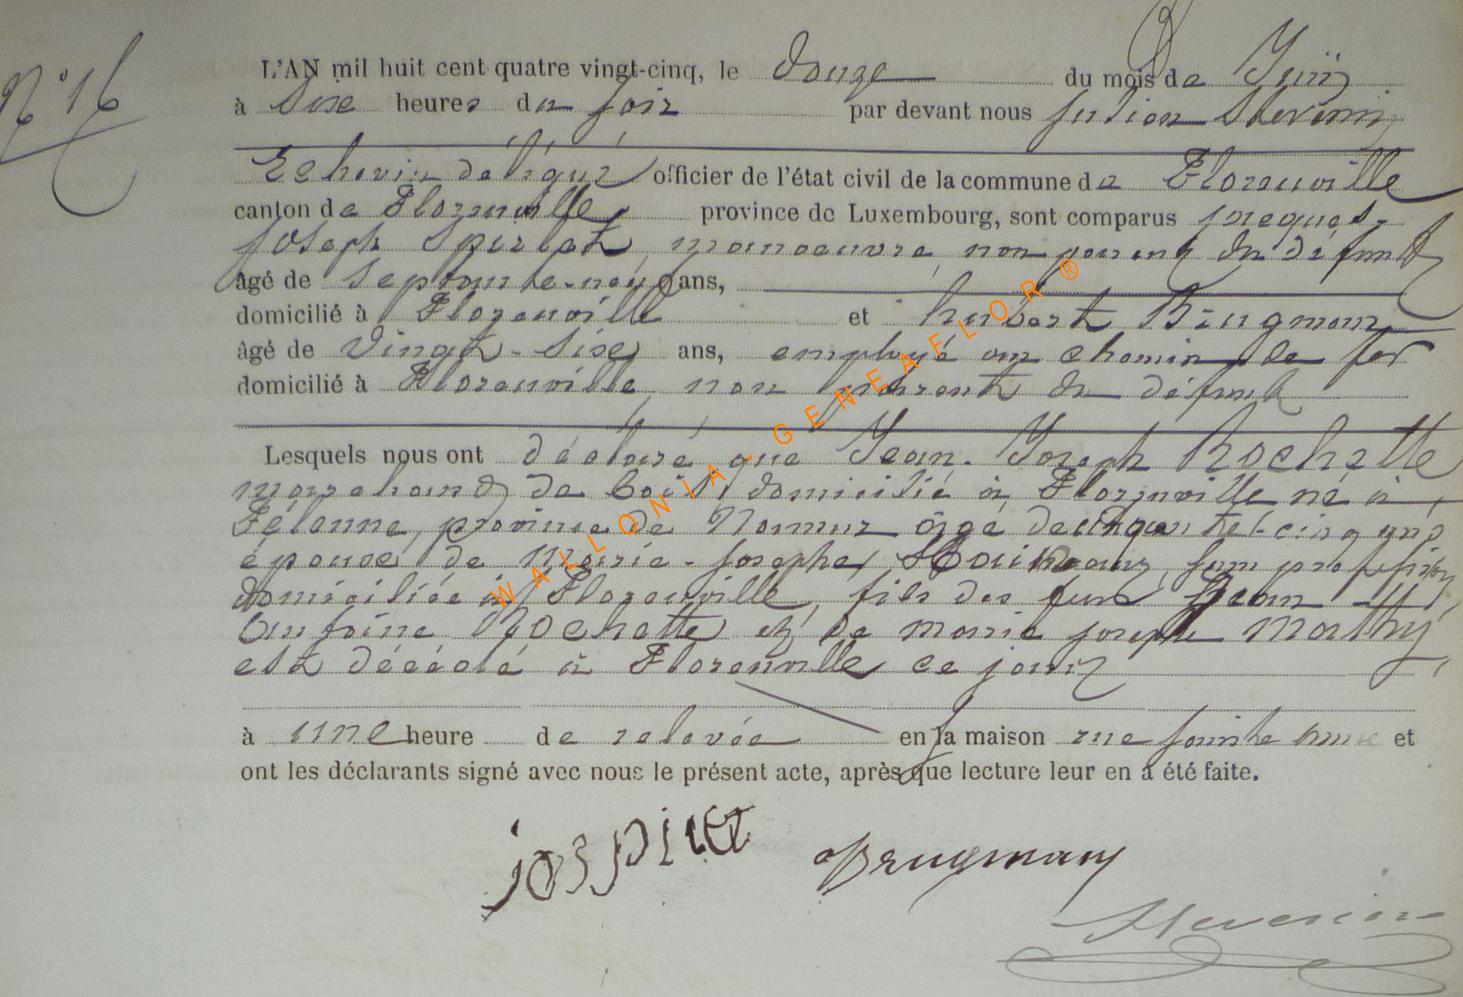 N° 16
L'AN mil huit cent quatre vingt-cinq, le douze du mois de Juin
à Six heures du soir par devant nous Julien
Echevin délégué officier de l'état civil de la commune de Florenville
canton de Florenville province de Luxembourg, sont comparus Jacques
Joseph Spirlet, manoeuvre, non parent du défunt
âgé de septante-neuf ans,
domicilié à Florenville et hubert Brugman
âgé de Vingt-Six ans, employé au chemin de fer
domicilié à Florenville, non parent du défunt
Lesquels nous ont déclaré que Jean-Joseph Rochette
marchand de bois, domicilié à Florenville né à
Félenne, province de Namur âgé de cinquante-cinq ans
épouse de Marie-Josephe, sans profession,
domiciliée à Florenville, fils des feus Jean
Antoine Rochette et de marie joseph Mathy,
est décédé à Florenville ce jour
à une heure de relevée en la maison rue sainte anne et
ont les déclarants signé avec nous le présent acte, après que lecture leur en a été faite.
josspirlet Brugman
WALLONIA-GENEAFLOR ®